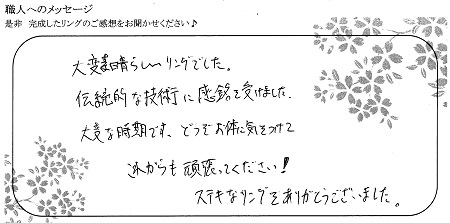 職人へのメッセージ
是非 完成したリングのご感想をお聞かせください♪
大変素晴らしいリングでした。
伝統的な技術に感銘を受けました。
大変な時期です、どうぞお体に気をつけて
これからも頑張ってください!
ステキなリングをありがとうございました。